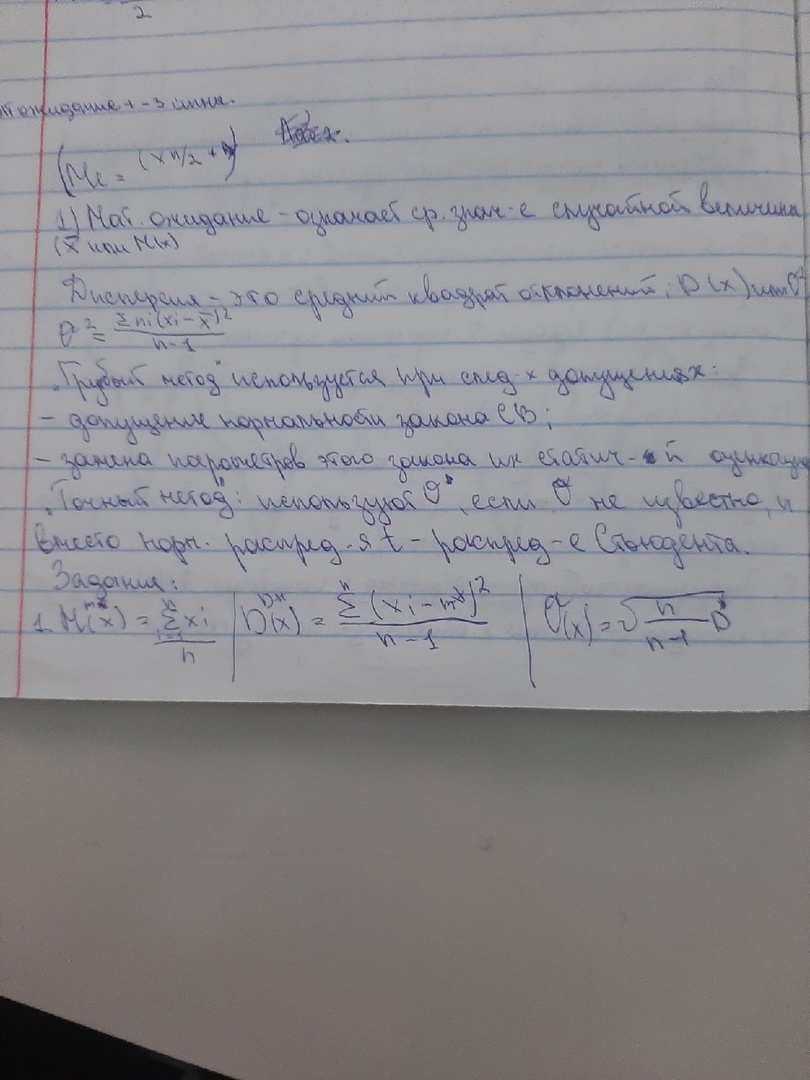 2
ожидание + - 3 сигма.
(Me = (x n/2 + )
1) Мат. ожидание - означает ср. знач-е случайной величины
(x̄ или M(x)
Дисперсия - это средний квадрат отклонений, D(x) или σ²
σ² = Σ ni(xi - x̄)² / n-1
"Грубый метод" используется при след-х допущениях:
- допущение нормальноби закона СВ;
- замена параметров этого закона их статич-й оценками
"Точный метод": используют σ*, если σ не известно, и
вместо норм. распред-я t - распред-е Стьюдента.
Задания:
1. M(x) m* = Σ xi / n | D(x) D* = Σ (xi - m*)² / n-1 | σ(x) = √ n / n-1 D*